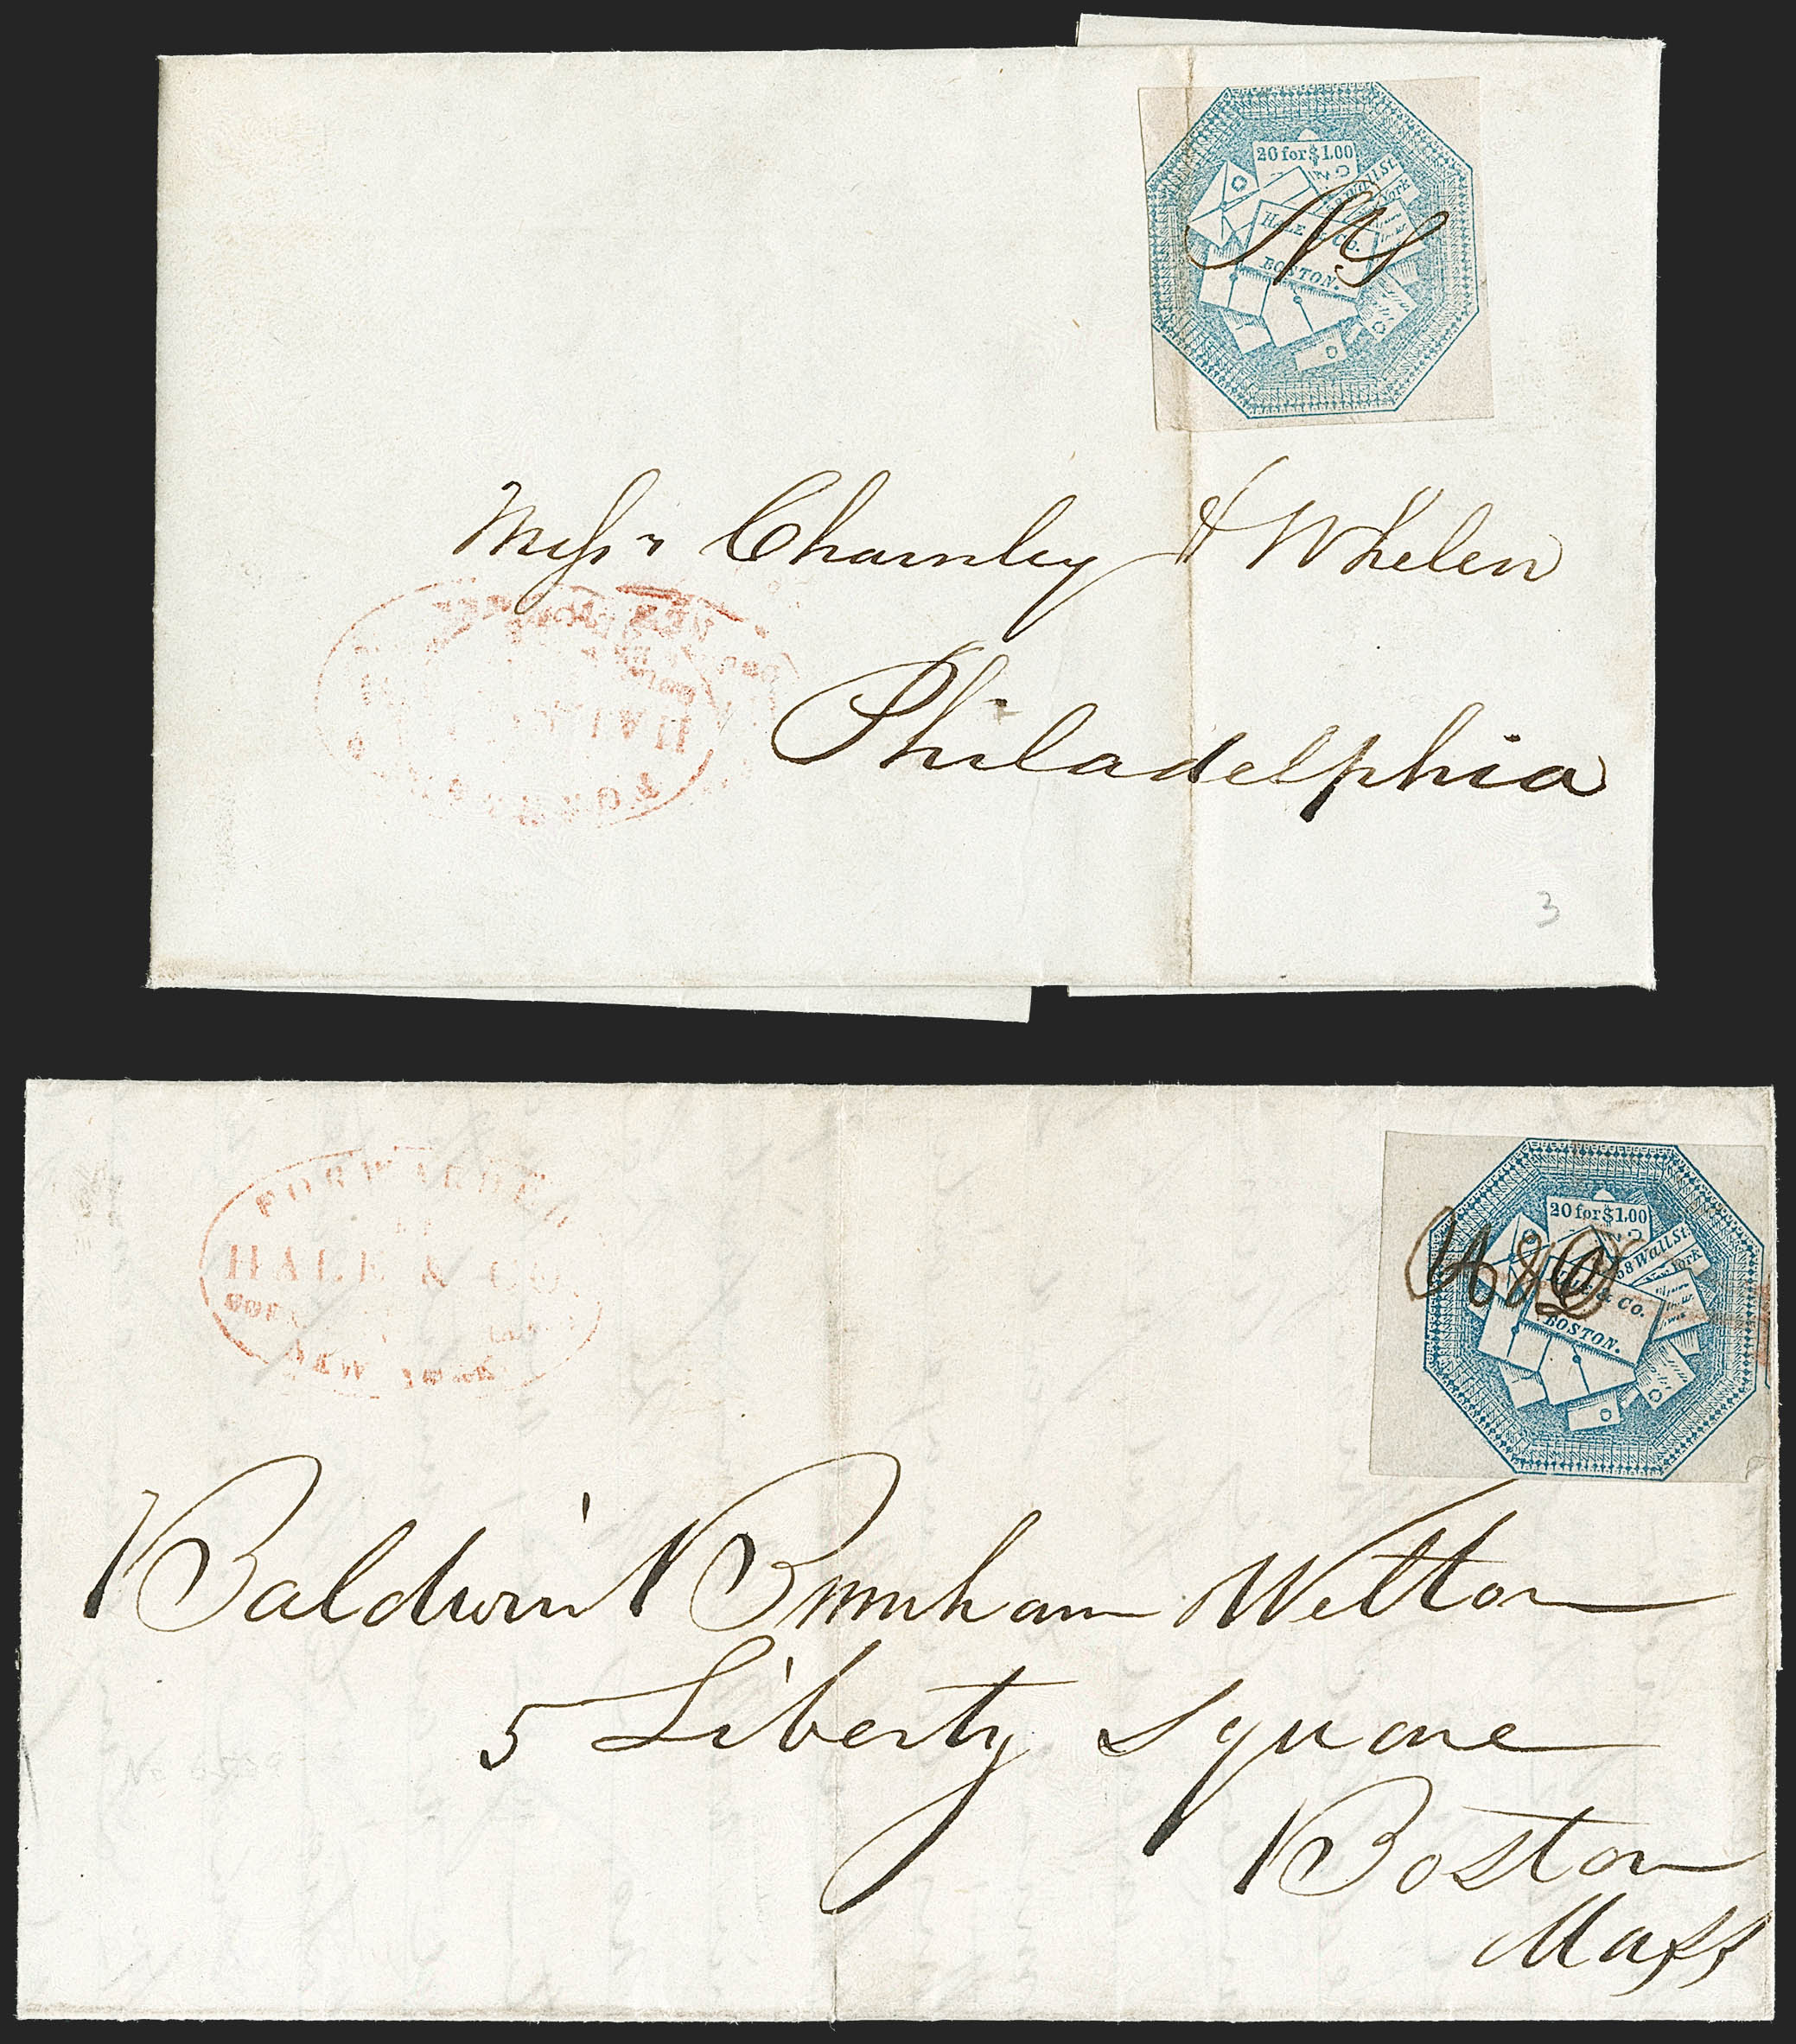 20 for $1.00
Wall St.
York
HALE & CO.
BOSTON.
Messrs Charnley & Whelen
Philadelphia
3
FORWARDED
BY
HALE & CO.
NEW YORK
20 for $1.00
58 Wall St.
New York
HALE & CO.
BOSTON.
Baldwin Burnham Welton
5 Liberty Square
Boston
Mass